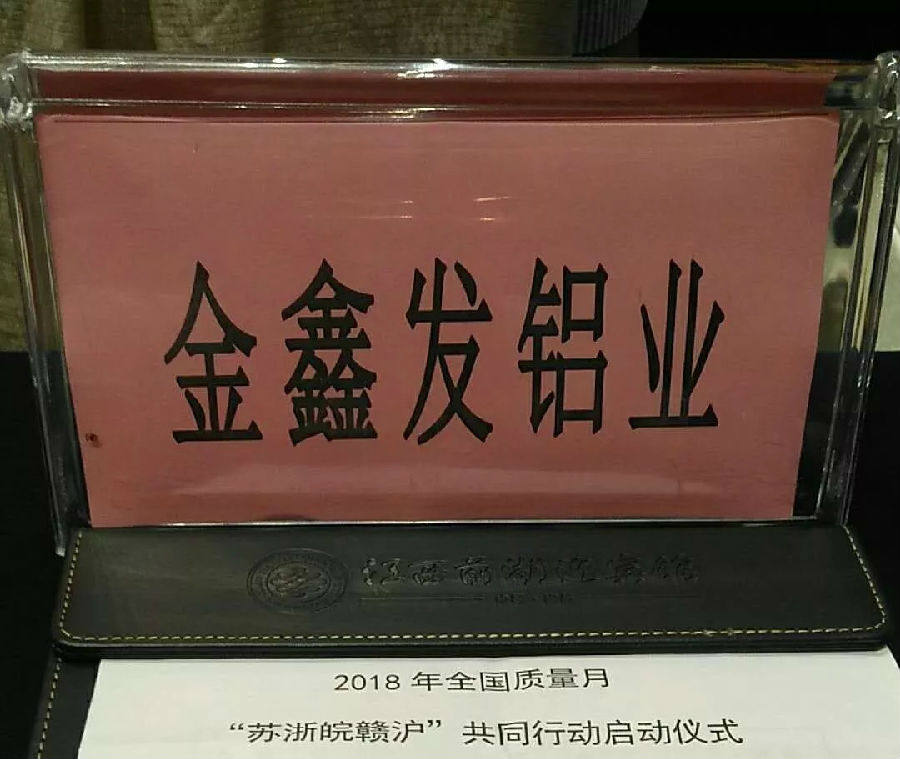 金鑫发铝业
江西前湖迎宾馆
2018 年全国质量月
“苏浙皖赣沪”共同行动启动仪式